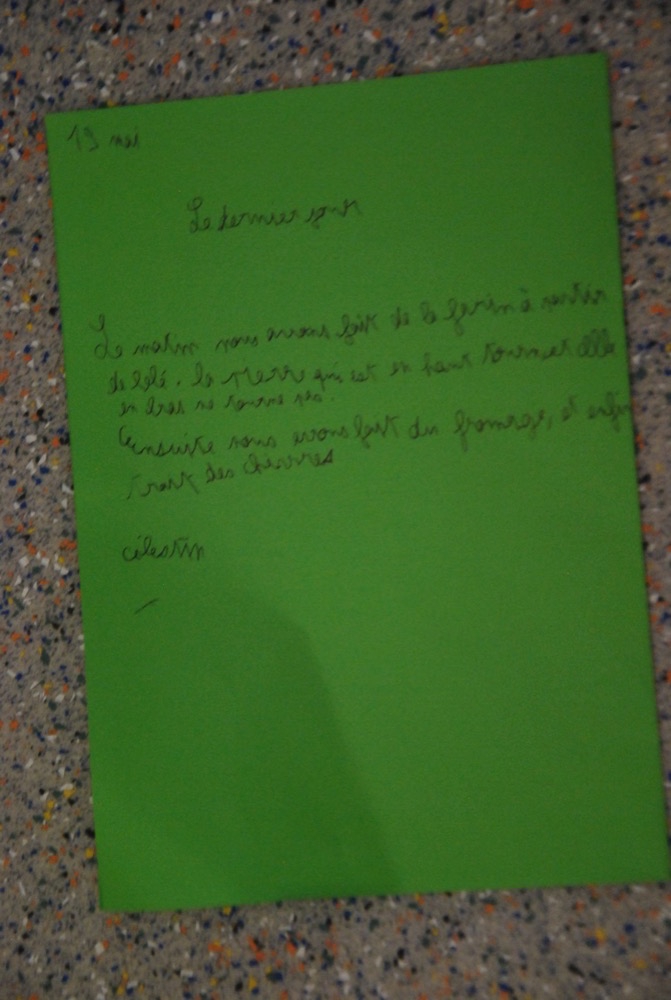 19 mai
Le dernier jour
Le matin nous avons fait de la farin à partir
de blé. la pierre qui est en haut tourne et elle
en bas ne tourne pas.
Ensuite nous avons fait du fromage, et enfin
trait des chèvres
célestin